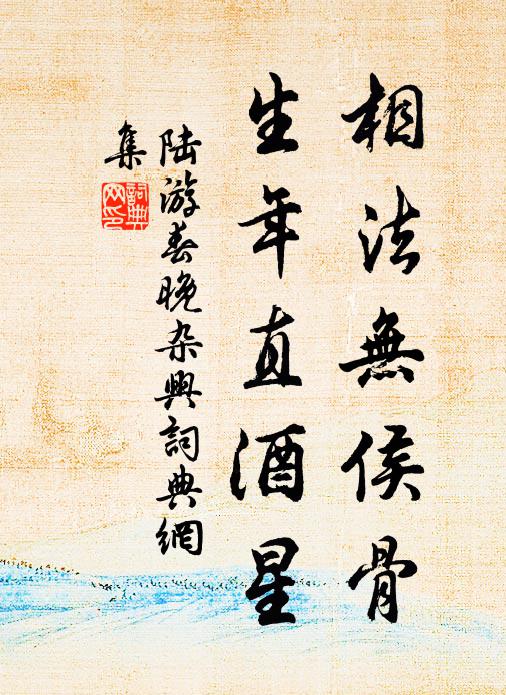 相法無侯骨
生年直酒星
陸游春晚杂興詞典網
集
詞典
网印